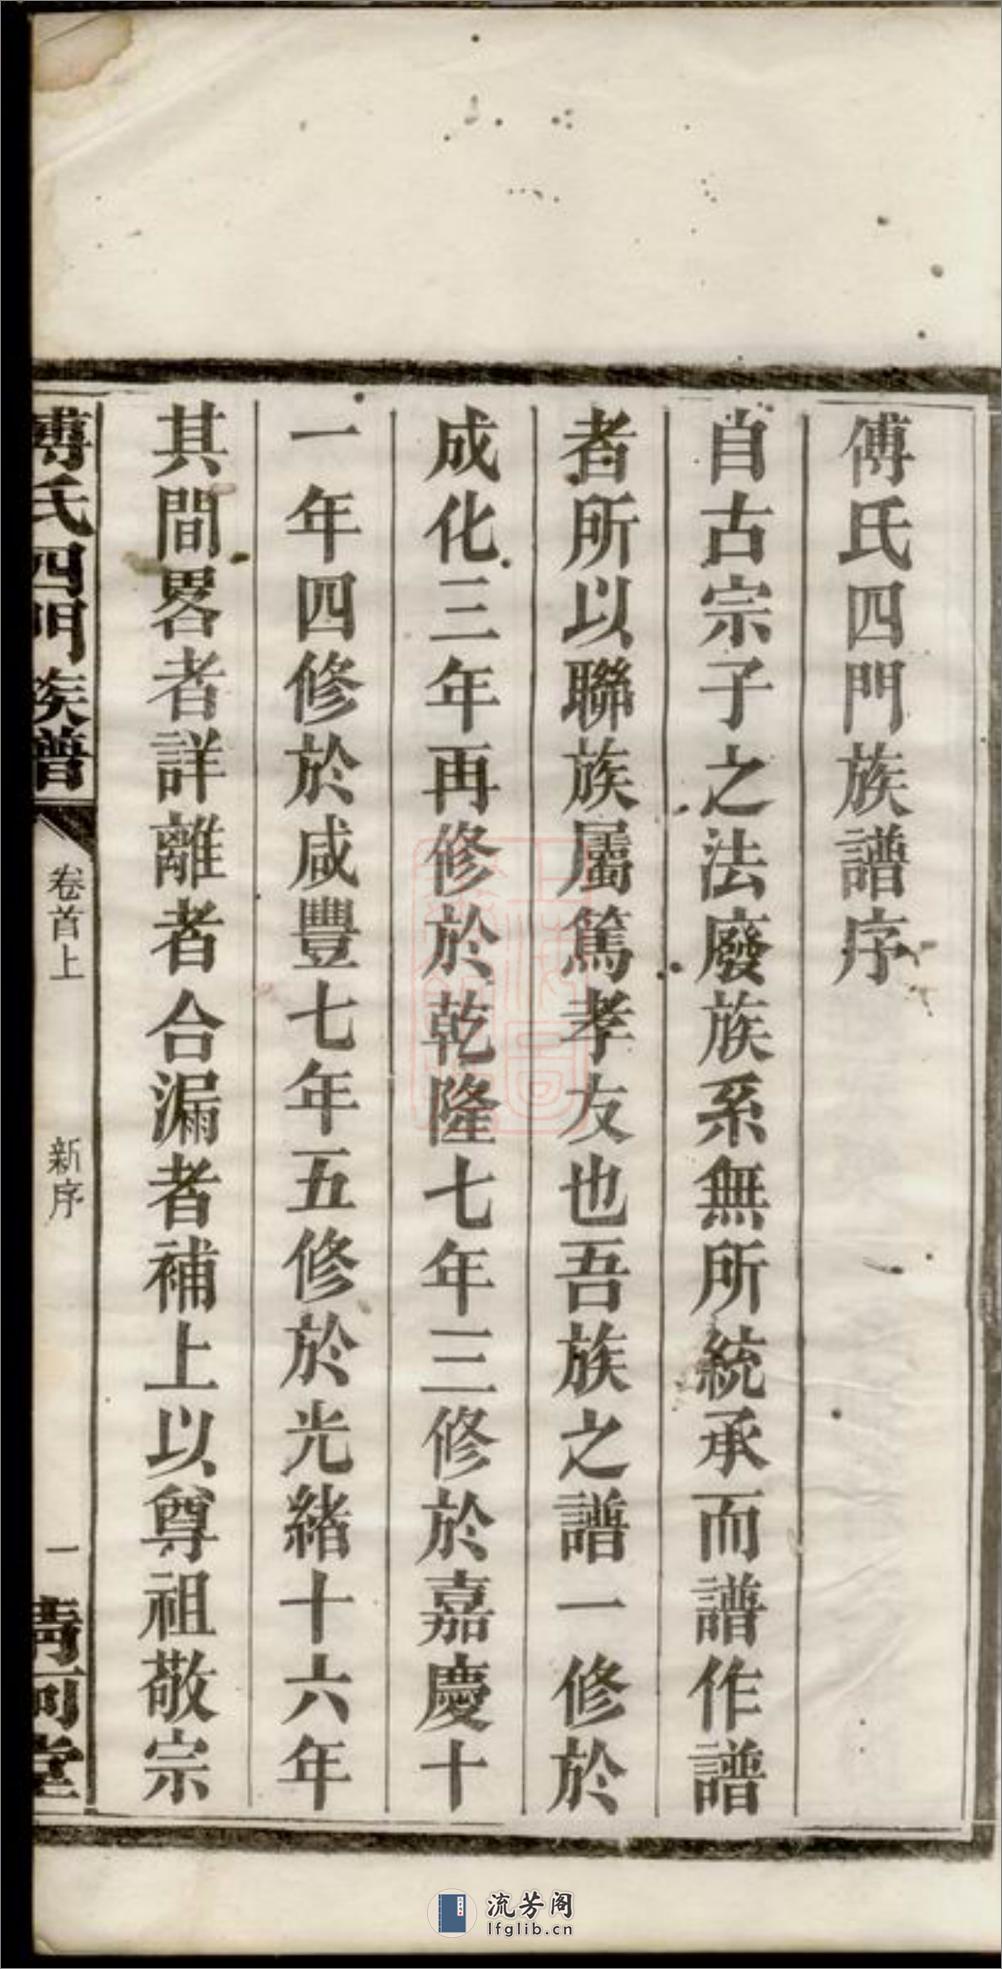 傅氏四門族譜序
自古宗子之法廢族系無所統承而譜作譜
者所以聯族屬篤孝友也吾族之譜一修於
成化三年再修於乾隆七年三修於嘉慶十
一年四修於咸豐七年五修於光緒十六年
其間畧者詳離者合漏者補上以尊祖敬宗
傅氏四門族譜
卷首上
新序
一
河堂
流芳阁
lfglib.cn